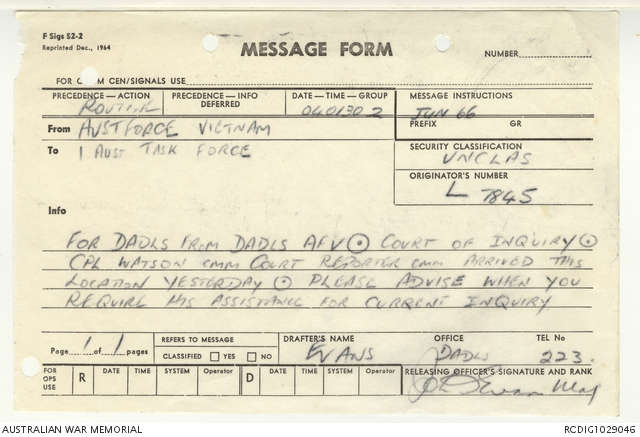 F Sigs 52-2
Reprinted Dec., 1964
MESSAGE FORM
NUMBER
FOR COMM CEN/SIGNALS USE
PRECEDENCE—ACTION
ROUTINE
PRECEDENCE—INFO
DEFERRED
DATE—TIME—GROUP
040130Z
MESSAGE INSTRUCTIONS
JUN 66
PREFIX GR
From AUSTFORCE VIETNAM
To 1 AUST TASK FORCE
SECURITY CLASSIFICATION
UNCLAS
ORIGINATOR'S NUMBER
L 7845
Info
FOR DADLS FROM DADLS AFV ⊙ COURT OF INQUIRY ⊙
CPL WATSON CMM COURT REPORTER CMM ARRIVED THIS
LOCATION YESTERDAY ⊙ PLEASE ADVISE WHEN YOU
REQUIRE HIS ASSISTANCE FOR CURRENT INQUIRY
Page 1 of 1 pages
REFERS TO MESSAGE
CLASSIFIED YES NO
DRAFTER'S NAME
EVANS
OFFICE
DADLS
TEL No
223.
FOR OPS USE
R DATE TIME SYSTEM Operator D DATE TIME SYSTEM Operator
RELEASING OFFICER'S SIGNATURE AND RANK
Evans Maj
AUSTRALIAN WAR MEMORIAL
RCDIG1029046